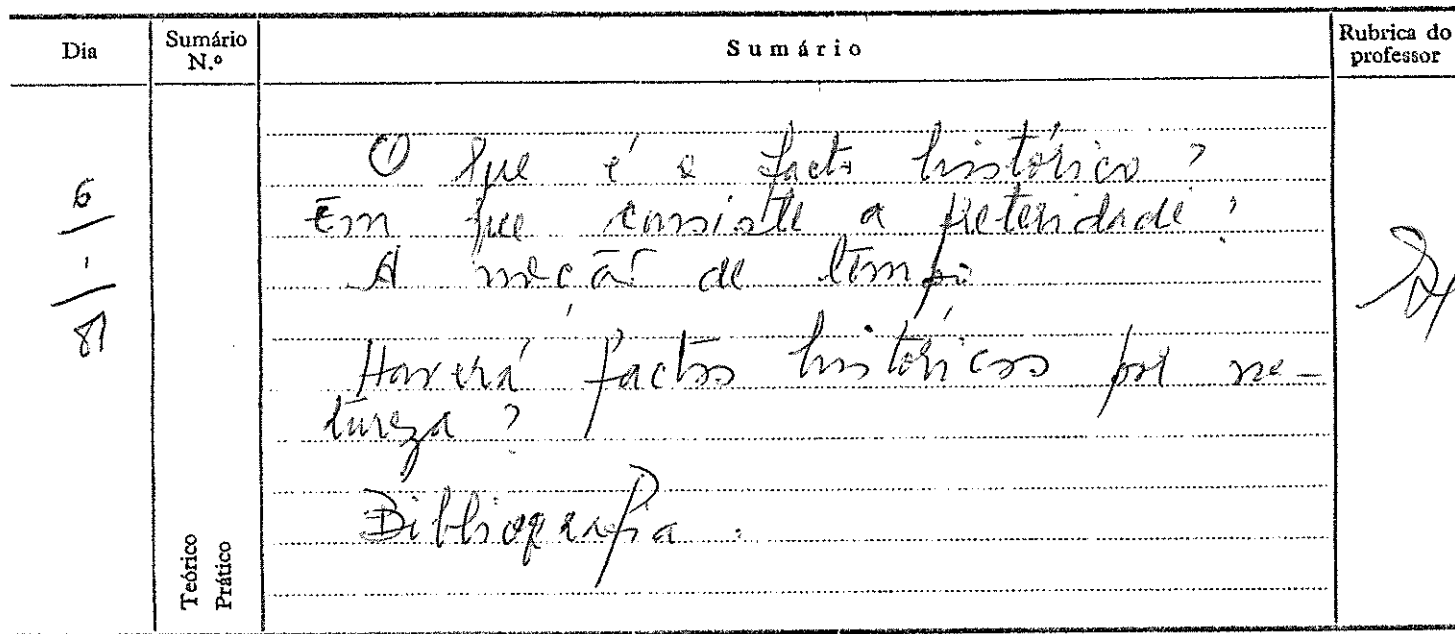 Dia
Sumário N.º
Sumário
Rubrica do professor
6
1
81
O que é o facto histórico?
Em que consiste a preteridade?
A noção de tempo.
Haverá factos históricos por na-
tureza?
Bibliografia.
Teórico
Prático